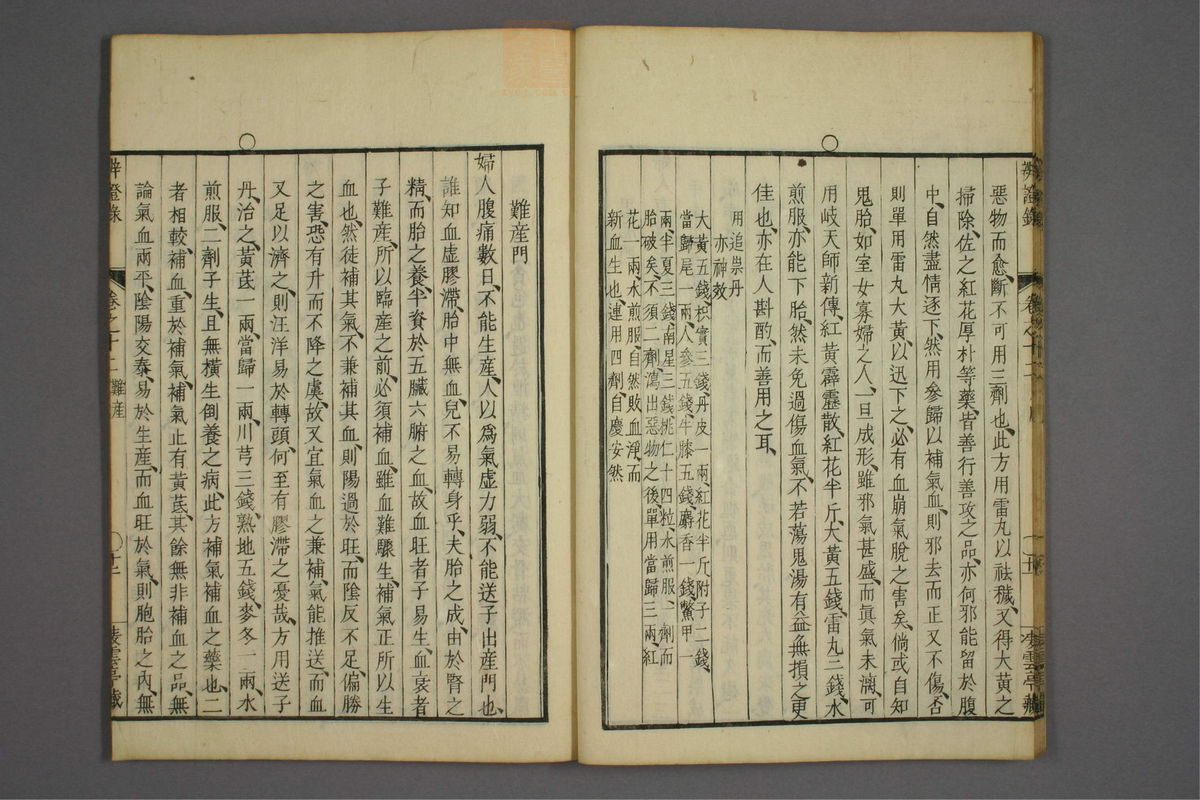 惡物而愈、斷不可用三劑也、此方用雷丸以祛穢、又得大黃之
掃除佐之紅花厚朴等藥、皆善行善攻之品、亦何邪能留於腹
中、自然盡情逐下、然用參歸以補氣血、則邪去而正又不傷、否
則單用雷丸大黃、以迅下之、必有血崩氣脫之害矣、倘或自知
鬼胎、如室女寡婦之人、一旦成形、雖邪氣甚盛、而眞氣未漓、可
用岐天師新傳、紅黃霹靂散、紅花半斤、大黃五錢、雷丸三錢、水
煎服、亦能下胎、然未免過傷血氣、不若蕩鬼湯有益無損之更
佳也、亦在人斟酌、而善用之耳、
用追祟丹
亦神效
大黃五錢、枳實三錢、丹皮一兩、紅花半斤、附子二錢、
當歸尾一兩、人參五錢、牛膝五錢、麝香一錢、鱉甲一
兩半夏三錢、南星三錢、桃仁十四粒、水煎服、一劑而
胎破矣、不須二劑、瀉出惡物之後、單用當歸三兩、紅
花一兩、水煎服、自然敗血淨、而
新血生也、連用四劑、自慶安然
難産門
婦人腹痛數日、不能生産、人以爲氣虛力弱、不能送子出産門也、
誰知血虛膠滯、胎中無血、兒不易轉身乎、夫胎之成、由於腎之
精、而胎之養、半資於五臟六腑之血、故血旺者子易生、血衰者
子難産、所以臨産之前、必須補血、雖血難驟生、補氣正所以生
血也、然徒補其氣、不兼補其血、則陽過於旺、而陰反不足、偏勝
之害、恐有升而不降之虞、故又宜氣血之兼補、氣能推送、而血
又足以濟之、則汪洋易於轉頭、何至有膠滯之憂哉、方用送子
丹、治之、黃芪一兩、當歸一兩、川芎三錢、熟地五錢、麥冬一兩、水
煎服、二劑子生、且無橫生倒養之病、此方補氣補血之藥也、二
者相較、補血重於補氣、補氣止有黃芪、其餘無非補血之品、無
論氣血兩平、陰陽交泰、易於生産、而血旺於氣、則胞胎之內、無
卷之十二 難産
十二